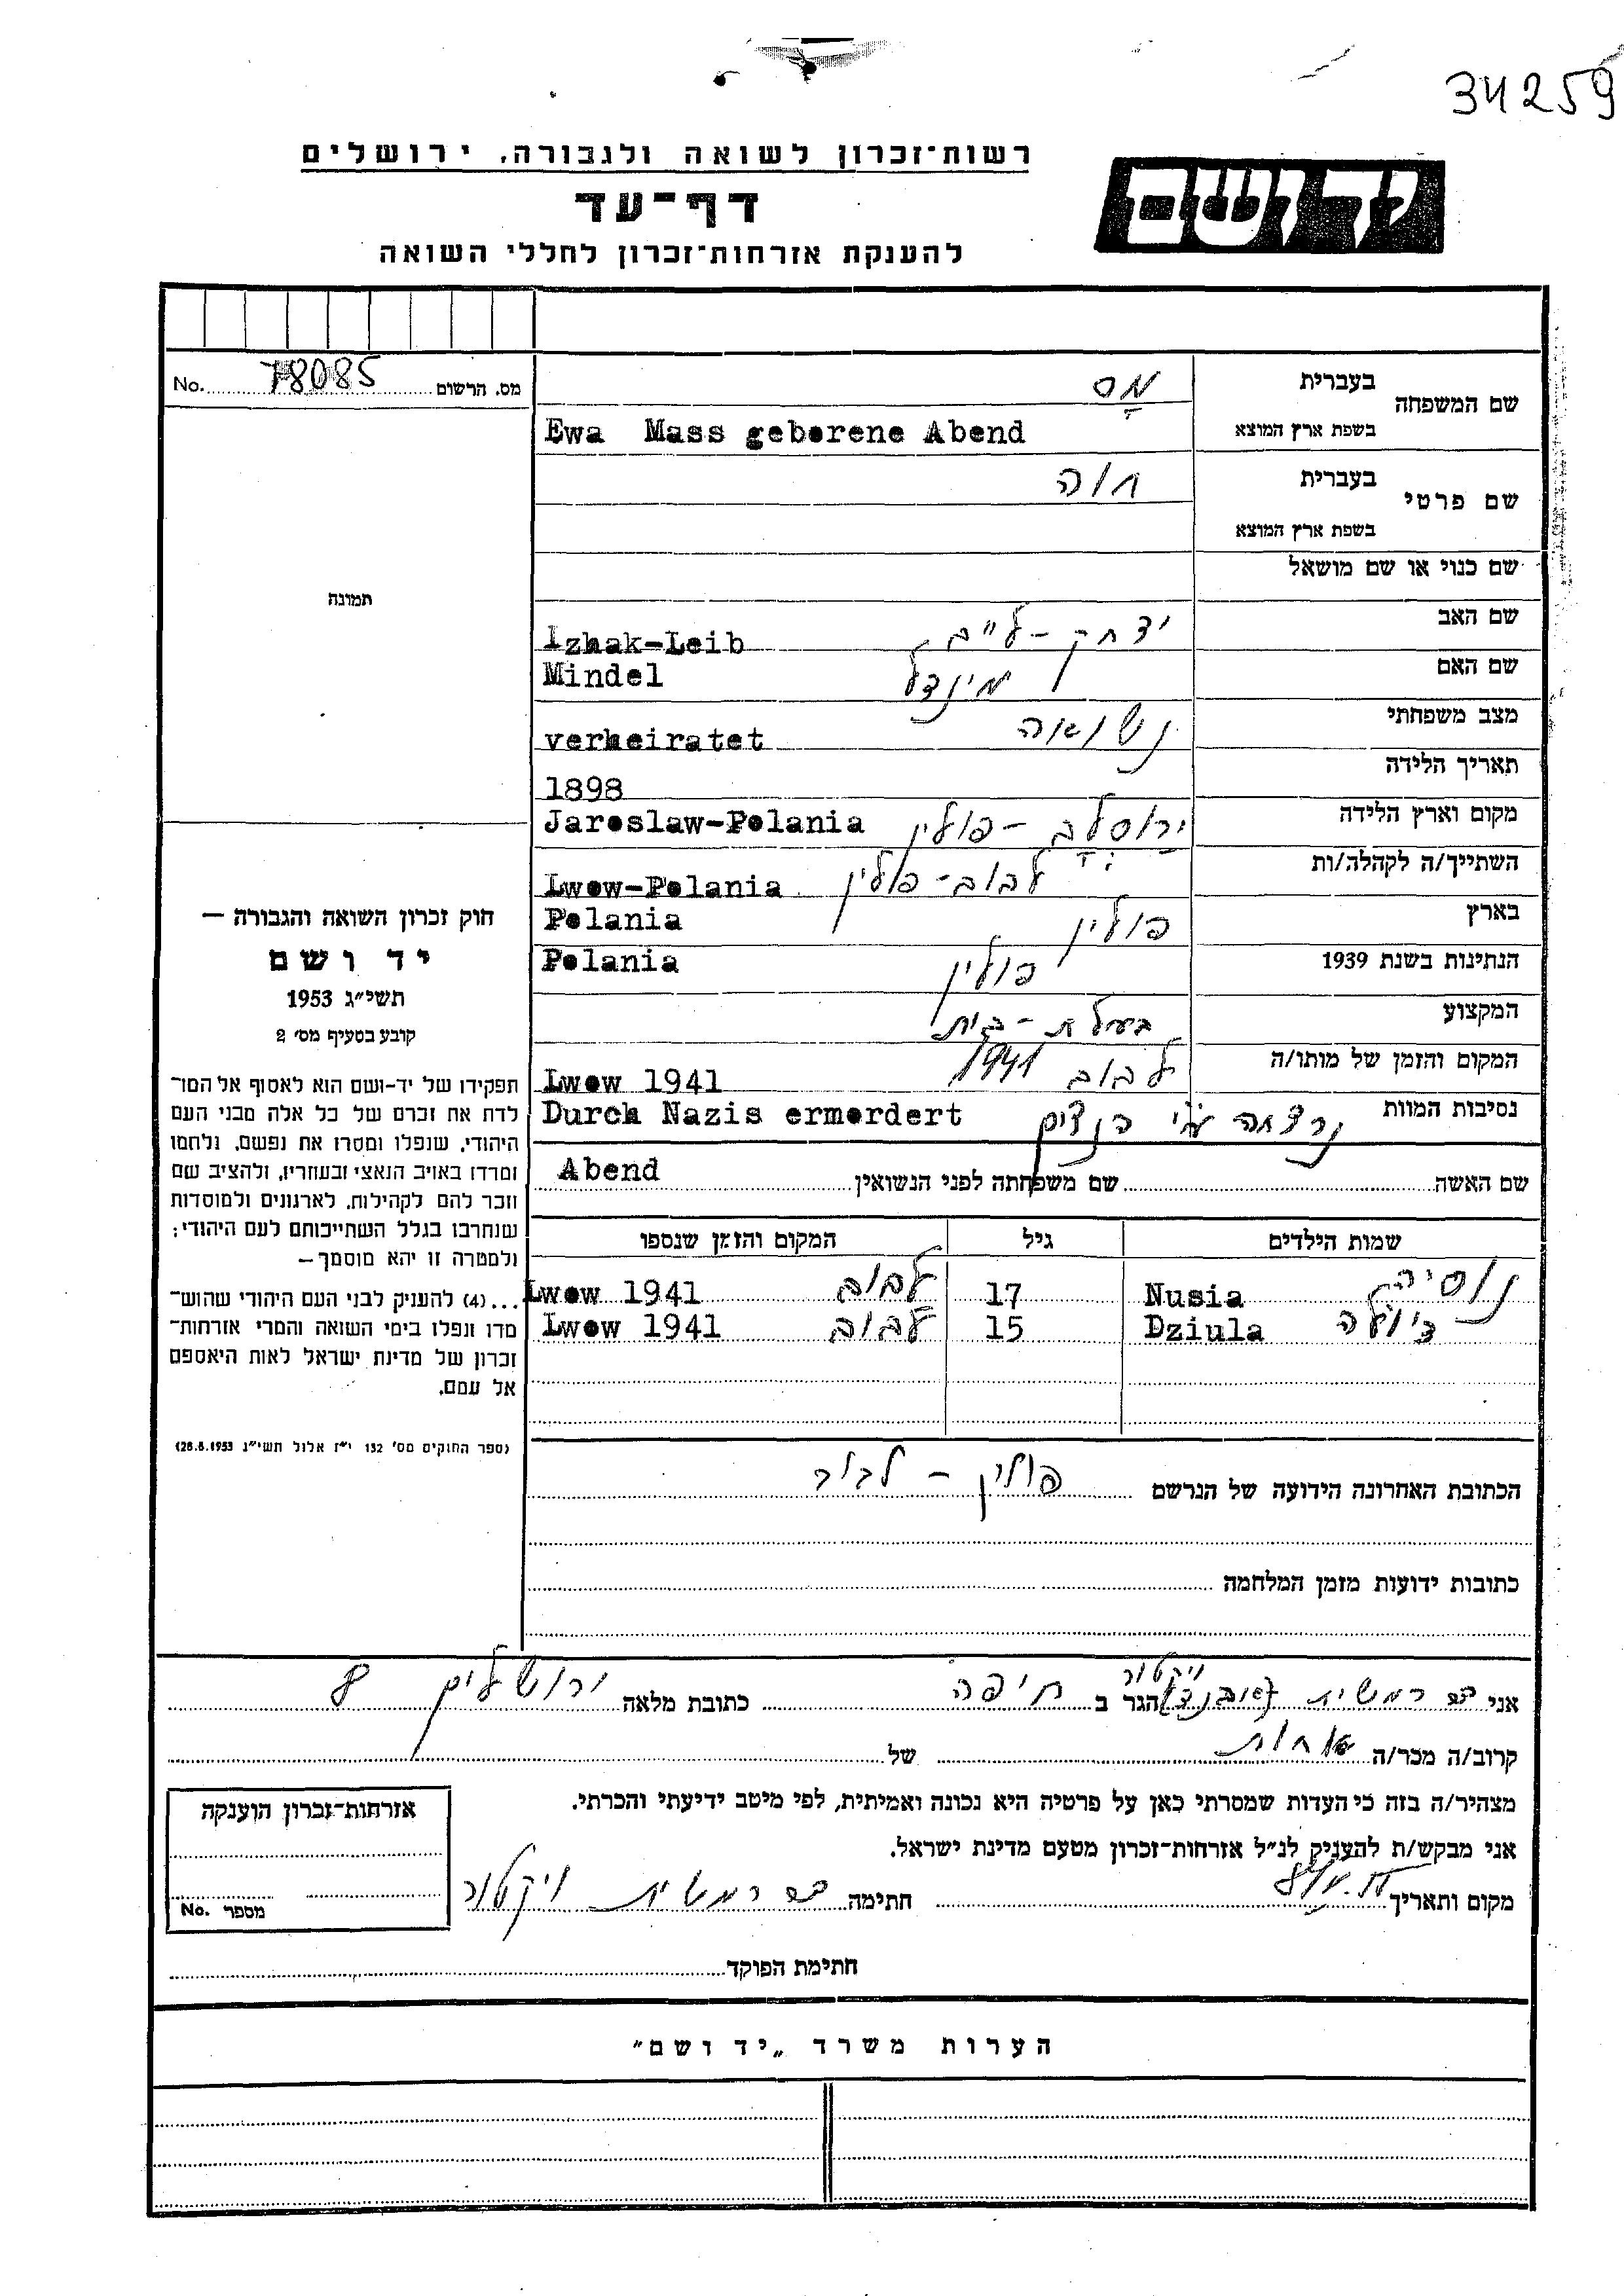 34259
רשות־זכרון לשואה ולגבורה, ירושלים
יד ושם
דף־עד
להענקת אזרחות־זכרון לחללי השואה
No. 78085 מס. הרשום
שם המשפחה בעברית מָס
בשפת ארץ המוצא Ewa Mass geborene Abend
שם פרטי בעברית חוה
בשפת ארץ המוצא
שם כנוי או שם מושאל
שם האב יצחק-לייב Izhak-Leib
שם האם מינדל Mindel
מצב משפחתי נשואה verheiratet
תאריך הלידה 1898
מקום וארץ הלידה ירוסלב - פולין Jaroslaw-Polania
השתייך/ה לקהלה/ות לבוב - פולין Lwow-Polania
בארץ פולין Polania
הנתינות בשנת 1939 פולין Polania
המקצוע בעלת - בית
המקום והזמן של מותו/ה לבוב 1941 Lwow 1941
נסיבות המוות נרצחה ע"י הנצים Durch Nazis ermordert
שם האשה שם משפחתה לפני הנשואין Abend
שמות הילדים גיל המקום והזמן שנספו
נוסיה Nusia 17 לבוב Lwow 1941
ציולה Dziula 15 לבוב Lwow 1941
הכתובת האחרונה הידועה של הנרשם פולין - לבוב
כתובות ידועות מזמן המלחמה
תמונה
חוק זכרון השואה והגבורה —
יד ושם
תשי״ג 1953
קובע בסעיף מס׳ 2
תפקידו של יד-ושם הוא לאסוף אל המו־
לדת את זכרם של כל אלה מבני העם
היהודי, שנפלו ומסרו את נפשם, נלחמו
ומרדו באויב הנאצי ובעוזריו, ולהציב שם
וזכר להם לקהילות, לארגונים ולמוסדות
שנחרבו בגלל השתייכותם לעם היהודי:
ולמטרה זו יהא מוסמך—
...(4) להעניק לבני העם היהודי שהוש־
מדו ונפלו בימי השואה והמרי אזרחות־
זכרון של מדינת ישראל לאות היאספם
אל עמם.
(ספר החוקים מס׳ 132 י״ז אלול תשי״ג 28.8.1953)
ויקטור
אני רמשית הגר ב חיפה כתובת מלאה ירושלים 8
קרוב/ה מכר/ה אחות של
מצהיר/ה בזה כי העדות שמסרתי כאן על פרטיה היא נכונה ואמיתית, לפי מיטב ידיעתי והכרתי.
אני מבקש/ת להעניק לנ״ל אזרחות־זכרון מטעם מדינת ישראל.
מקום ותאריך חתימה רמשית ויקטור
אזרחות־זכרון הוענקה
No. מספר
חתימת הפוקד
הערות משרד „יד ושם״